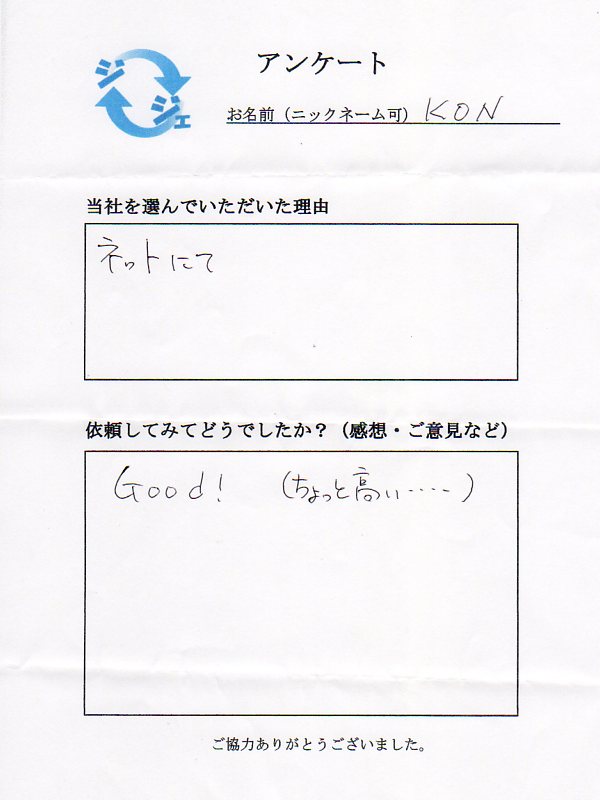 ジジェ
アンケート
お名前（ニックネーム可） KON
当社を選んでいただいた理由
ネットにて
依頼してみてどうでしたか？（感想・ご意見など）
Good! （ちょっと高い‥‥）
ご協力ありがとうございました。